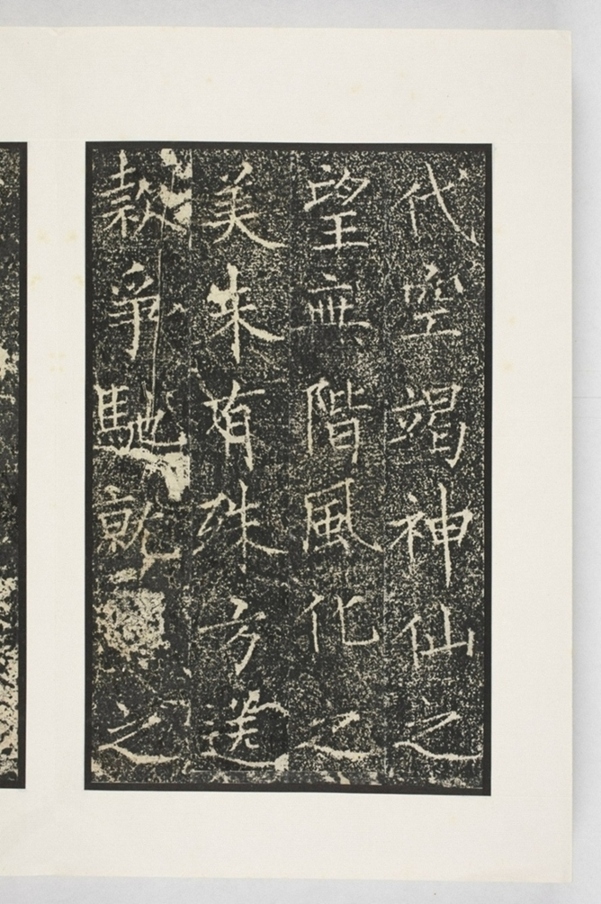 代空竭神仙之
望無階風化之
美未有殊方送
款爭馳就之